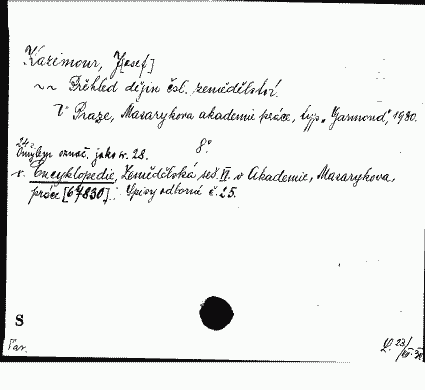 Kazimour, J[osef]
~~ Přehled dějin čsl. zemědělství.
V Praze, Masarykova akademie práce, typ. „Garmond", 1930.
24.
Omylem označ. jako č. 28. 8°
v. Encyklopedie, Zemědělská seš. II. v Akademie, Masarykova,
práce [67830]. Spisy odborné č. 25.
S
Par.